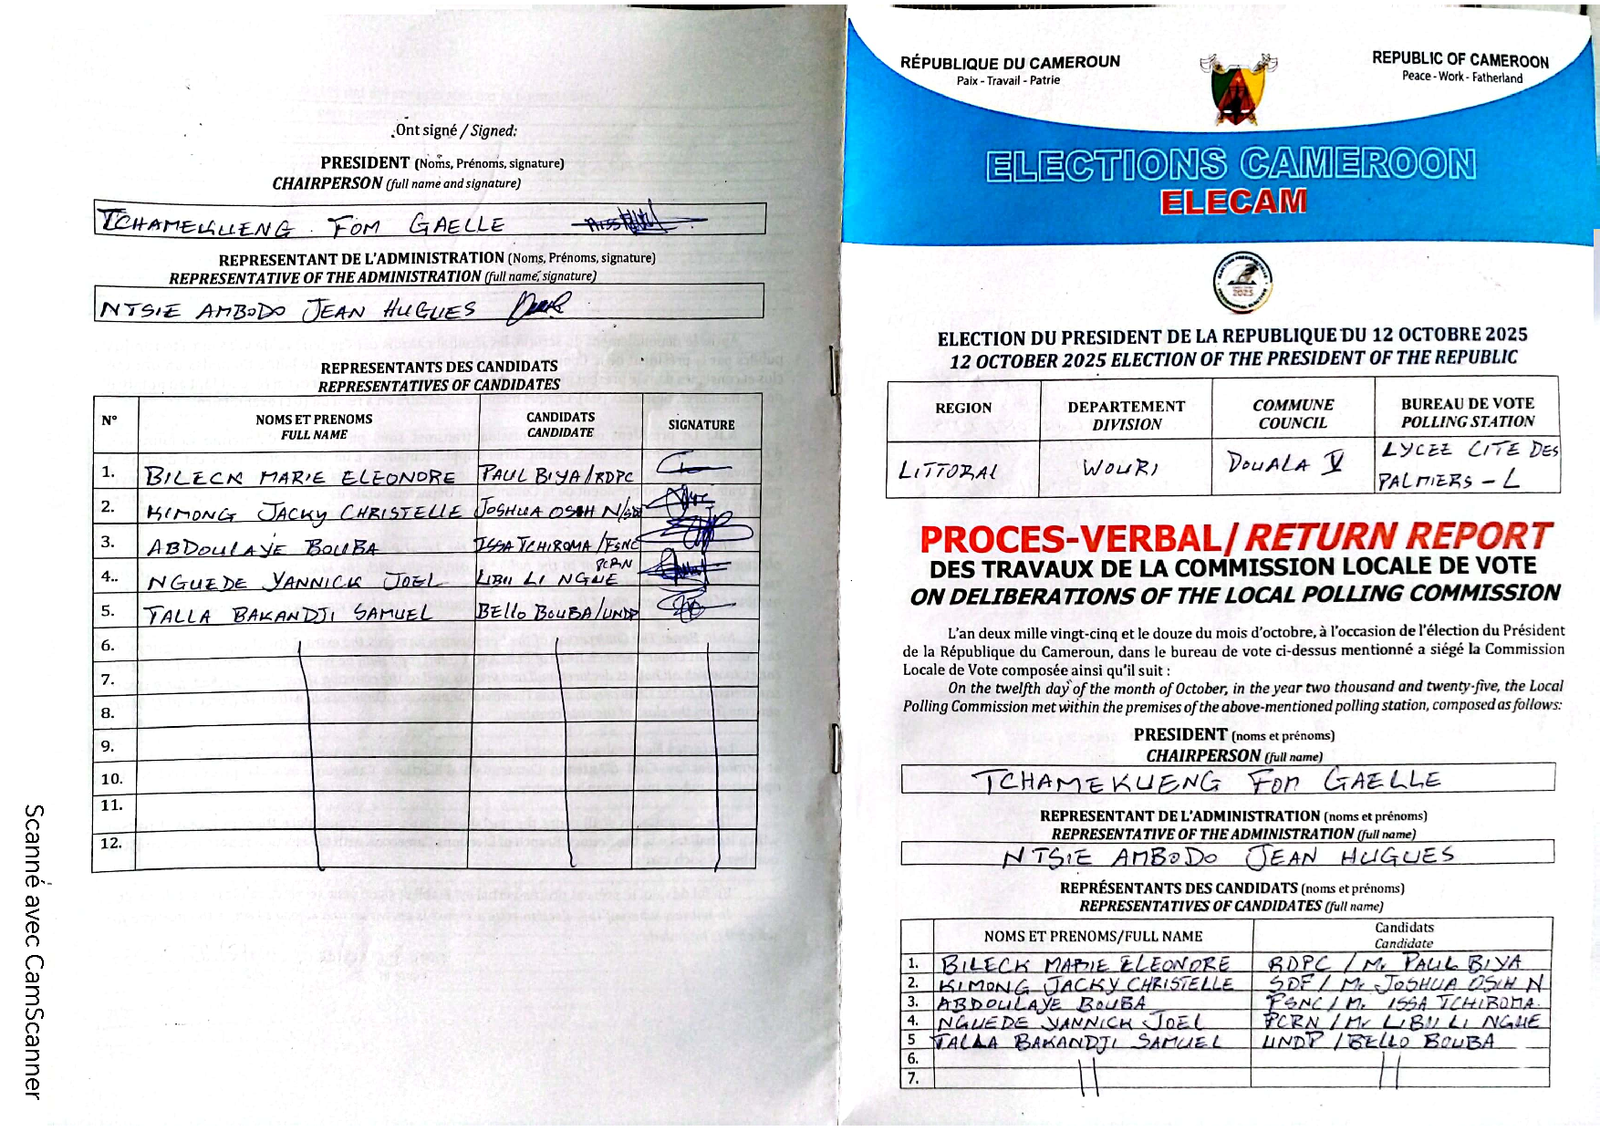 Ont signé / Signed:
PRESIDENT (Noms, Prénoms, signature)
CHAIRPERSON (full name and signature)
TCHAMEKUENG FOM GAELLE
REPRESENTANT DE L'ADMINISTRATION (Noms, Prénoms, signature)
REPRESENTATIVE OF THE ADMINISTRATION (full name, signature)
NTSIE AMBODO JEAN HUGUES
REPRESENTANTS DES CANDIDATS
REPRESENTATIVES OF CANDIDATES
N° NOMS ET PRENOMS CANDIDATS SIGNATURE
FULL NAME CANDIDATE
1. BILECK MARIE ELEONORE PAUL BIYA/RDPC
2. KIMONG JACKY CHRISTELLE JOSHUA OSIH N/SDF
3. ABDOULAYE BOUBA ISSA TCHIROMA/FSNC
4.. NGUEDE YANNICK JOEL LIBII LI NGUE PCRN
5. TALLA BAKANDJI SAMUEL BELLO BOUBA/UNDP
6.
7.
8.
9.
10.
11.
12.
Scanné avec CamScanner
RÉPUBLIQUE DU CAMEROUN
Paix - Travail - Patrie
REPUBLIC OF CAMEROON
Peace - Work - Fatherland
ELECTIONS CAMEROON
ELECAM
2025
ELECTION DU PRESIDENT DE LA REPUBLIQUE DU 12 OCTOBRE 2025
12 OCTOBER 2025 ELECTION OF THE PRESIDENT OF THE REPUBLIC
REGION DEPARTEMENT COMMUNE BUREAU DE VOTE
DIVISION COUNCIL POLLING STATION
LITTORAL WOURI DOUALA V LYCEE CITE DES
PALMIERS - L
PROCES-VERBAL/ RETURN REPORT
DES TRAVAUX DE LA COMMISSION LOCALE DE VOTE
ON DELIBERATIONS OF THE LOCAL POLLING COMMISSION
L'an deux mille vingt-cinq et le douze du mois d'octobre, à l'occasion de l'élection du Président
de la République du Cameroun, dans le bureau de vote ci-dessus mentionné a siégé la Commission
Locale de Vote composée ainsi qu'il suit :
On the twelfth day of the month of October, in the year two thousand and twenty-five, the Local
Polling Commission met within the premises of the above-mentioned polling station, composed as follows:
PRESIDENT (noms et prénoms)
CHAIRPERSON (full name)
TCHAMEKUENG FOM GAELLE
REPRESENTANT DE L'ADMINISTRATION (noms et prénoms)
REPRESENTATIVE OF THE ADMINISTRATION (full name)
NTSIE AMBODO JEAN HUGUES
REPRÉSENTANTS DES CANDIDATS (noms et prénoms)
REPRESENTATIVES OF CANDIDATES (full name)
NOMS ET PRENOMS/FULL NAME Candidats
Candidate
1. BILECK MARIE ELEONORE RDPC / Mr PAUL BIYA
2. KIMONG JACKY CHRISTELLE SDF / Mr JOSHUA OSIH N
3. ABDOULAYE BOUBA FSNC / M. ISSA TCHIROMA.
4. NGUEDE YANNICK JOEL PCRN / Mr LIBII LI NGUE
5 TALLA BAKANDJI SAMUEL UNDP / BELLO BOUBA
6.
7.